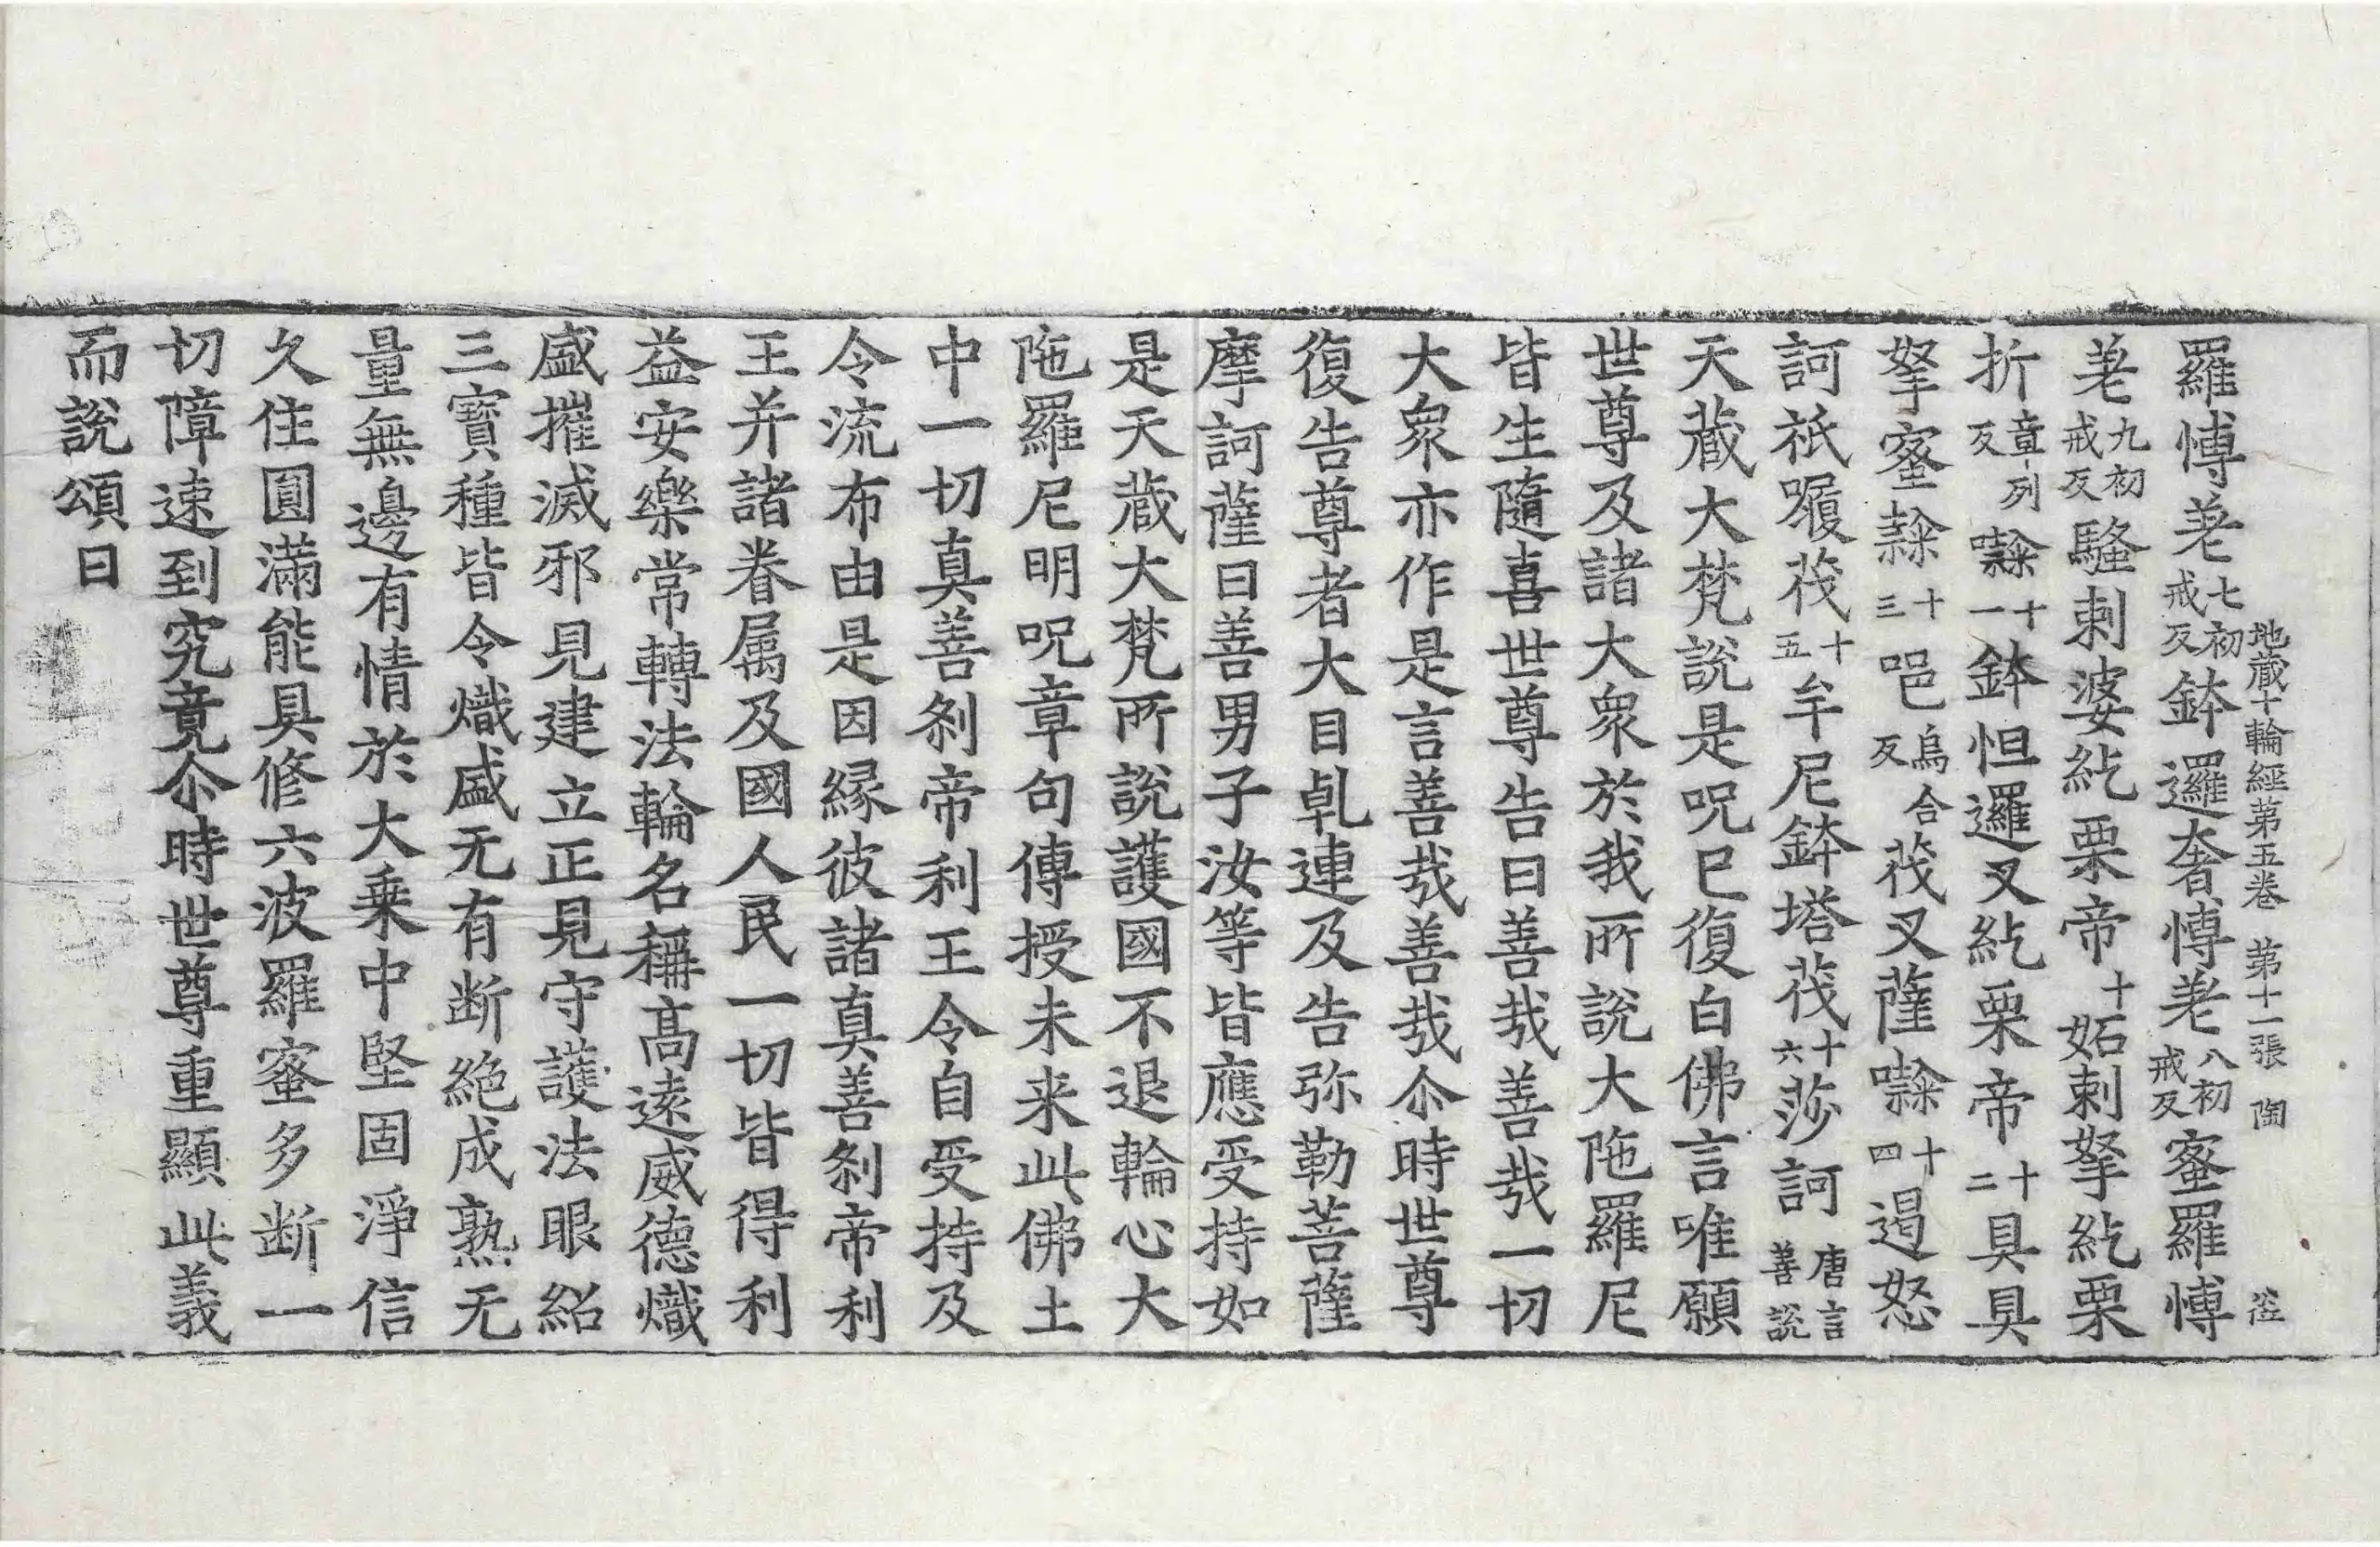 地藏十輪經第五卷 第十一張 陶
羅愽差七初戒反鉢邏奢愽差八初戒反蜜羅愽
差九初戒反騷剌婆紇栗帝十妬剌拏紇栗
折章列反㘑十一鉢怛邏叉紇栗帝十二具具
拏蜜隸十三唈烏合反茷叉薩㘑十四遏怒
訶祇囑茷十五牟尼鉢塔茷十六莎訶唐言善說
天藏大梵說是呪已復白佛言唯願
世尊及諸大衆於我所說大陁羅尼
皆生隨喜世尊告曰善㢤善㢤一切
大衆亦作是言善㢤善㢤尒時世尊
復告尊者大目乹連及告弥勒菩薩
摩訶薩曰善男子汝等皆應受持如
是天藏大梵所說護國不退輪心大
陁羅尼明呪章句傳授未来此佛土
中一切真善刹帝利王令自受持及
令流布由是因縁彼諸真善刹帝利
王并諸眷属及國人民一切皆得利
益安樂常轉法輪名稱髙遠威德熾
盛摧滅邪見建立正見守護法眼紹
三寶種皆令熾盛无有断絶成熟无
量無邊有情於大乗中堅固淨信
久住圓滿能具修六波羅蜜多断一
切障速到究竟尒時世尊重顯此義
而說頌曰